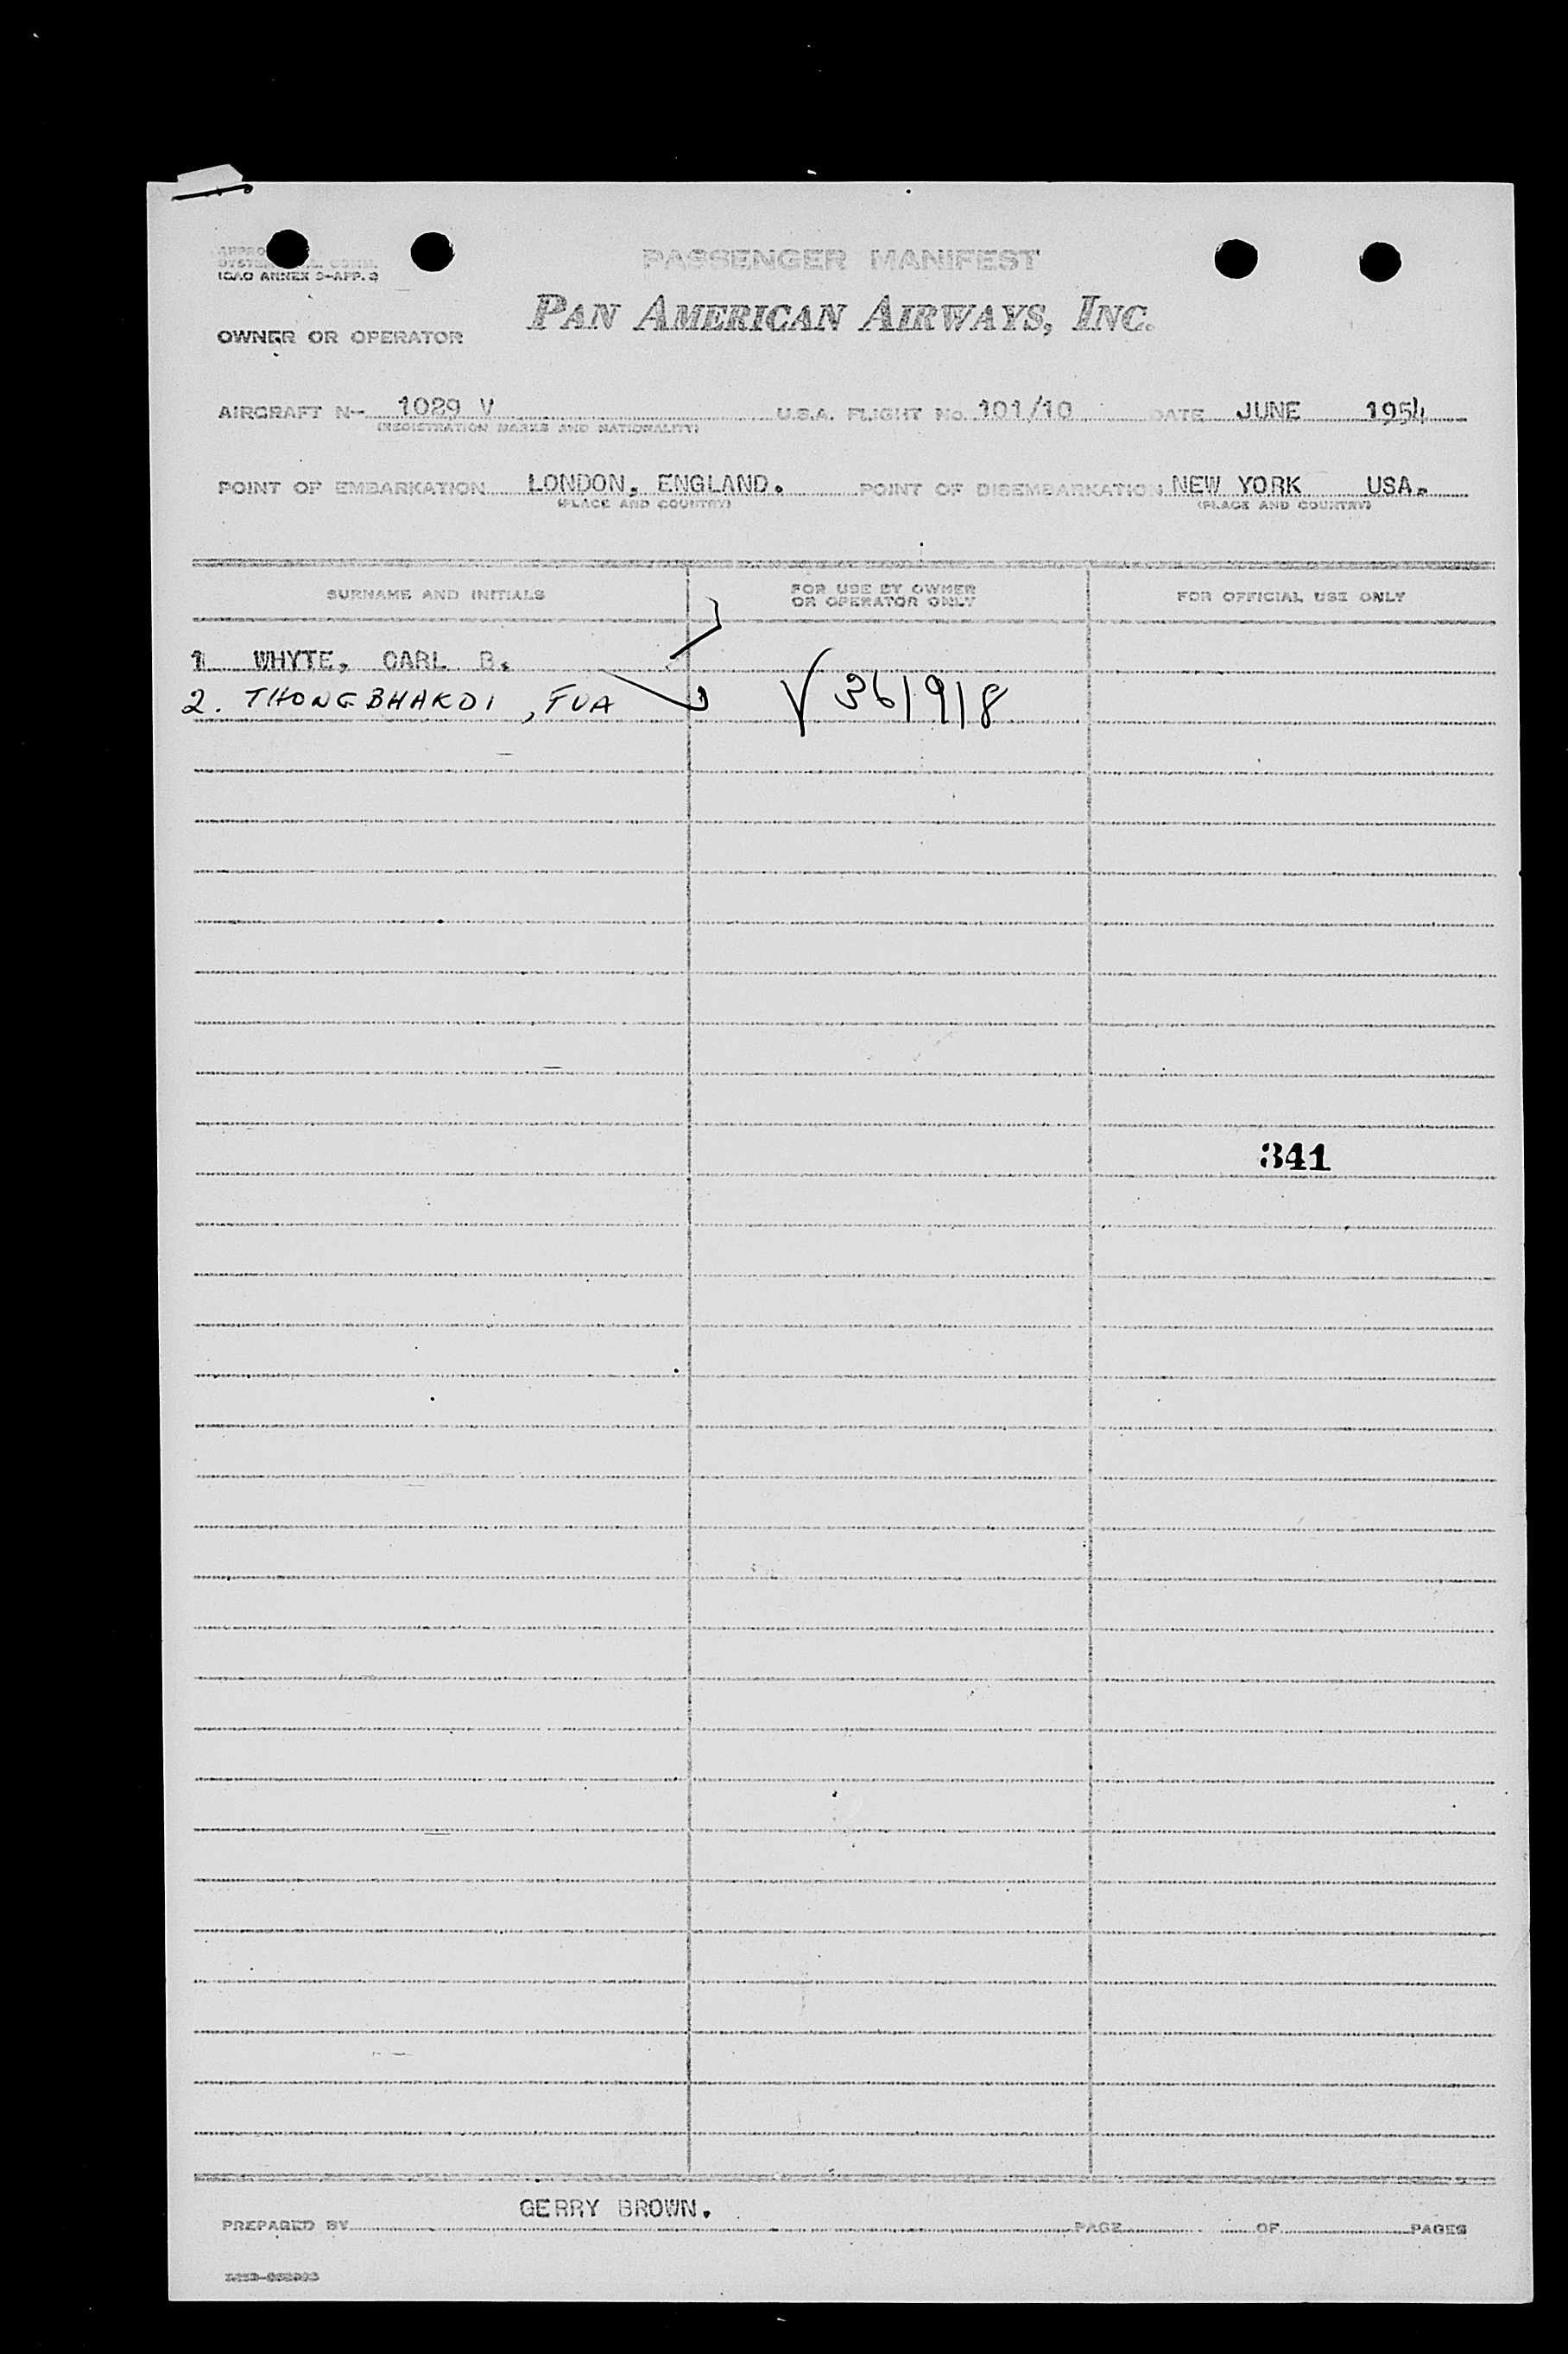 PASSENGER MANIFEST
ICAO ANNEX 9-APP. 3
PAN AMERICAN AIRWAYS, INC.
OWNER OR OPERATOR
AIRCRAFT N- 1029 V U.S.A. FLIGHT NO. 101/10 DATE JUNE 1954
(REGISTRATION MARKS AND NATIONALITY)
POINT OF EMBARKATION LONDON, ENGLAND. POINT OF DISEMBARKATION NEW YORK USA.
(PLACE AND COUNTRY) (PLACE AND COUNTRY)
SURNAME AND INITIALS FOR USE BY OWNER OR OPERATOR ONLY FOR OFFICIAL USE ONLY
1 WHYTE, CARL B.
2. THONGBHAKDI, FUA √ 36/9/8
341
GERRY BROWN.
PREPARED BY PAGE OF PAGES